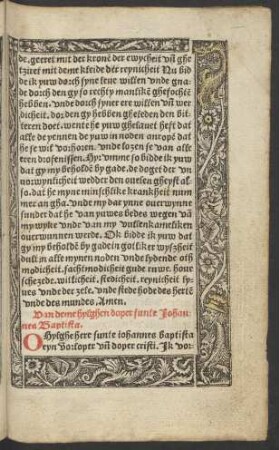 de. geeret mit der kronē der ewycheit vn̄ ghe
tziret mit deme kleide der reynicheit Nu bid
de ik yuw dorch syne leue willen vnde gna-
de dorch den gy so rechte manlikē ghefochtē
hebben. vnde dorch syner ere willen vn̄ wer
dicheit. dor den gy hebben gheleden den bit-
teren doet. wente he yuw ghelauet heft dat
alle de yennen de yuw in noden anropē dat
he se wil vorhoren. vnde lozen se van alle
eren
Hyr vmme so bidde ik yuw
dat gy my beholdē by gade. de doget der vn
vorwynlicheit wedder den quesen gheyst al
so. dat he myne minschlike krankheit num
mer an gha. vnde my dar ynne ouerwynne
sunder dat he van yuwes bedes wegen vā
my wyke vnde van my
ouerwunnen werde. Ok bidde ik yuw dat
gy my beholdē by gade in gotliker wyszheit
dult in alle mynen noden vnde lydende oth
modicheit. sachtmodicheit gude ruwe. houe
sche zede. mitlicheit. stedicheit. reynicheit ly
ues vnde der zele. vnde stede hode des hertē
vnde des mundes, Amen.
Van deme hylghen doper sunte Johan-
nes Baptista.
O Hylghe here sunte iohannes baptista
eyn vorloper vn̄ doper cristi. Ik vor-